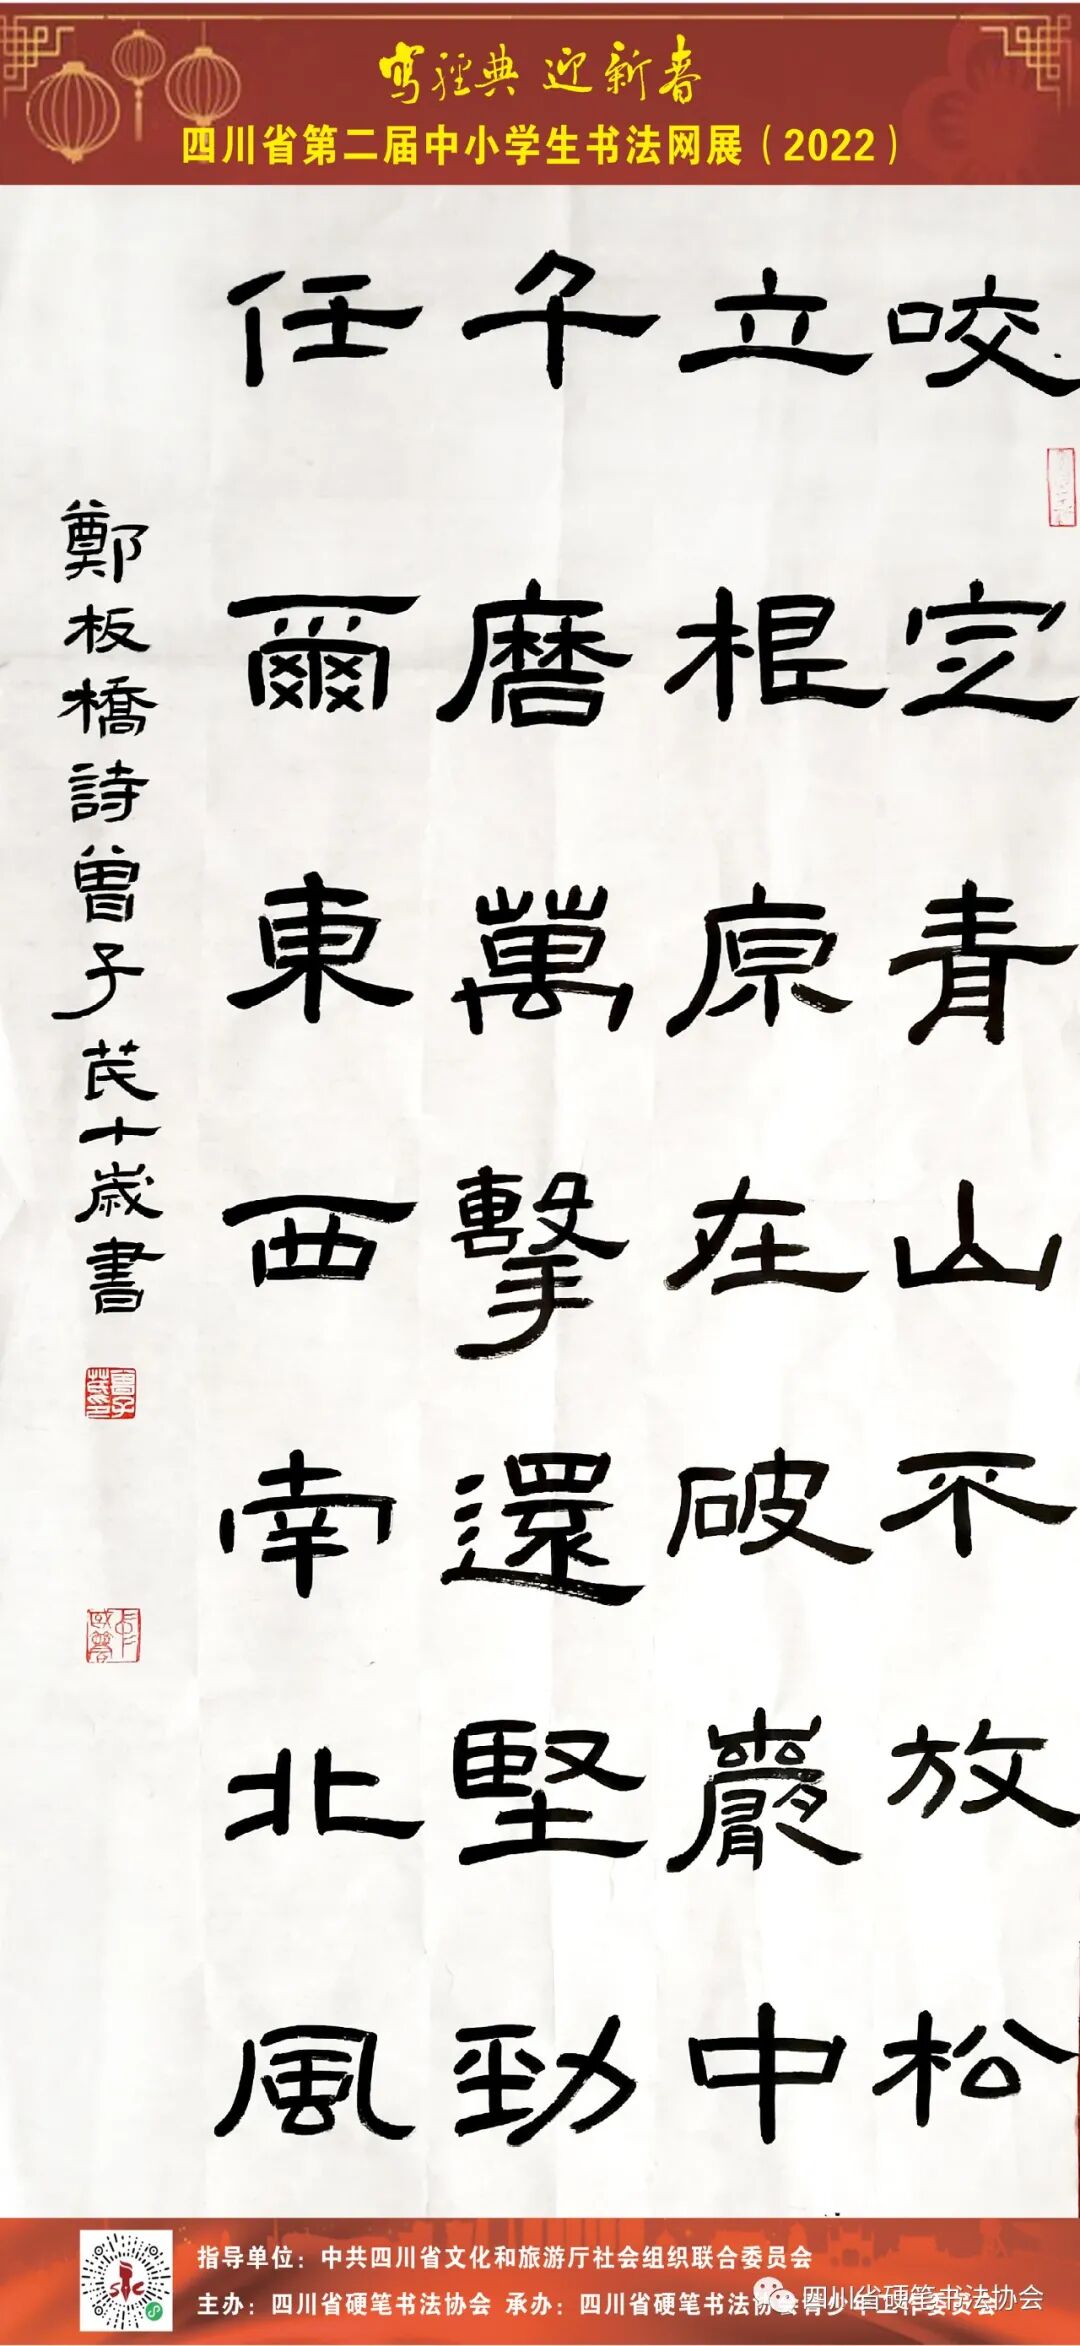 写经典 迎新春
四川省第二届中小学生书法网展（2022）
咬定青山不放松
立根原在破巖中
千磨萬擊還堅勁
任爾東西南北風
鄭板橋詩曾子芪十歲書
指导单位：中共四川省文化和旅游厅社会组织联合委员会
主办：四川省硬笔书法协会 承办：四川省硬笔书法协会青少年工作委员会
四川省硬笔书法协会